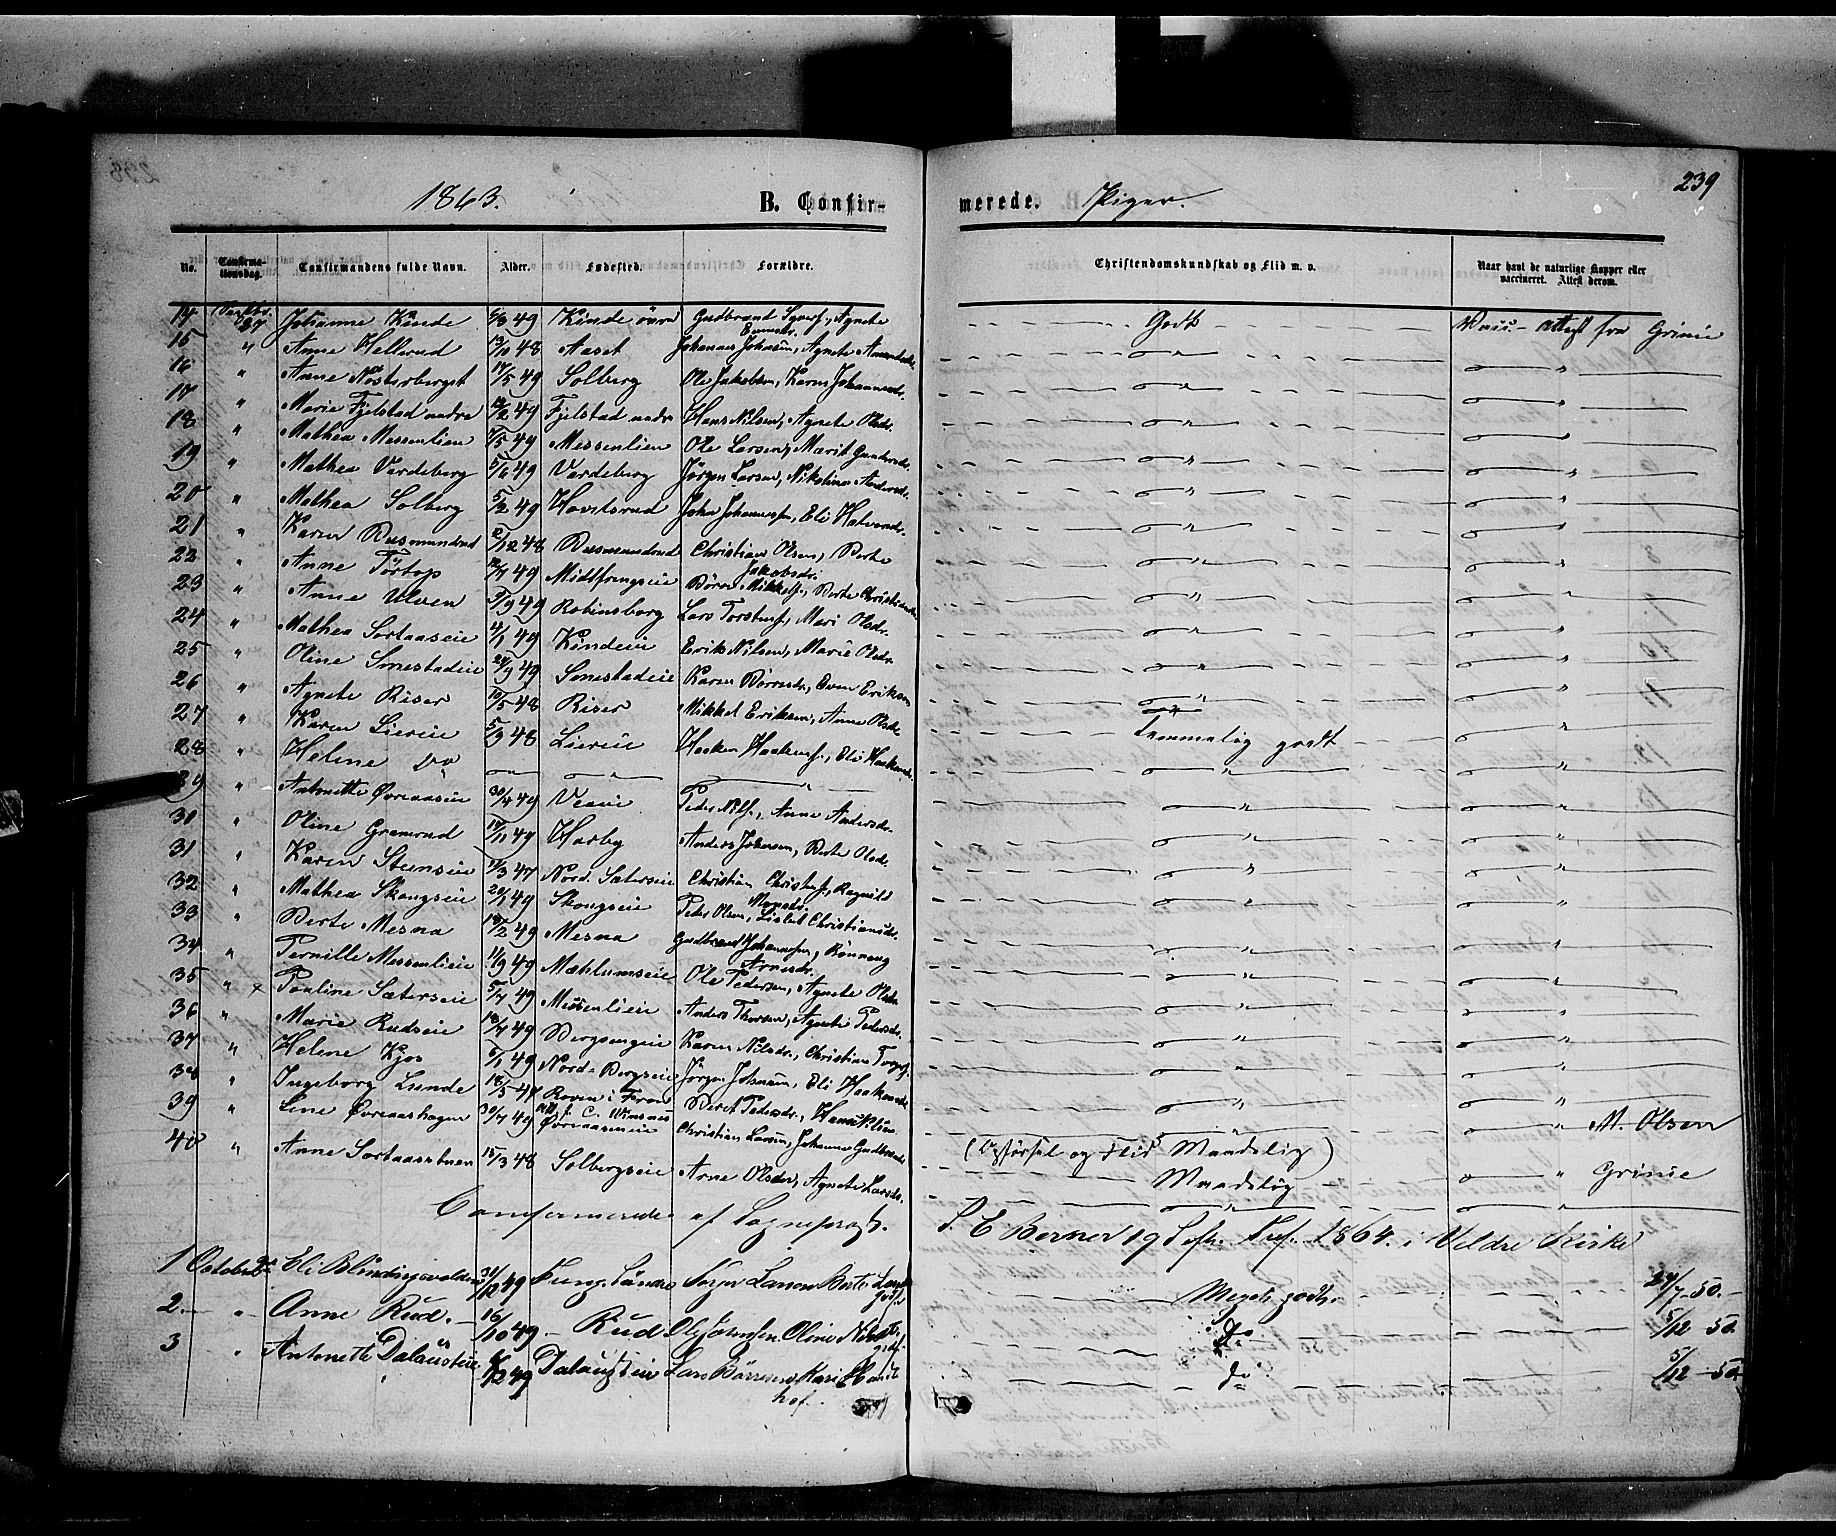 239
1863. B. Confirmerede. Piger.
No. Confirmationsdag. Confirmandens fulde Navn. Alder. Fødested. Forældre. Christendomskundskab og Flid m. v. Naar havt de naturlige Kopper eller vaccineret. Attest derom.
14 27 Johanne Kinde 6/8 49 Kinde øvre Gudbrand Agnete Godt attest fra Grinie
15 " Anne Hellerud 13/10 48 Aaset Johannes Johansen, Agnete Amundsdr.
16 " Anne Nosterberget 14/5 49 Solberg Ole Jakobsen, Karen Johannesdr.
17 " Marie Fjelstad nedre 12/2 49 Fjelstad nedre Hans Nilsen, Agnete Olsdr.
18 " Mathea Messenlien 7/5 49 Messenlien Ole Larsen, Marit Gundersdr.
19 " Mathea Vardeberg 5/6 49 Vardeberg Jörgen Larsen, Nikoline Andersdr.
20 " Mathea Solberg 5/2 49 Hovelsrud John Johannesen, Eli Halvorsdr.
21 " Karen Rusmundrud 2/12 48 Rusmundrud Christian Olsen, Berte Jakobsdr.
22 " Anne Törtop 12/7 49 Midtfrengseie Börre Mikkels., Berte Christiansdr.
23 " Anne Ulven 9/9 49 Robinsborg Lars Torstens., Mari Olsdr.
24 " Mathea Sortaaseie 4/1 49 Kindeie Erik Nilsen, Marie Olsdr.
25 " Oline Smestadeie 24/9 49 Smestadeie Karen Börresdr., Even Eriksen
26 " Agnete Riser 19/5 48 Riser Mikkel Eriksen, Anne Olsdr.
27 " Karen Liereie 5/9 48 Liereie Haaken Haakens., Eli Haakensdr. Temmelig godt
28 " Helene do
29 " Antonette Øvreaaseie 30/4 49 Veavie Peder Nils., Anne Andersdr.
30 " Oline Gramrud 14/11 49 Harby Anders Johansen, Berte Olsdr.
31 " Karen Steenseie 11/3 47 Nord. Sæterseie Christian Christens., Ragnild
32 " Mathea Skougseie 20/1 49 Skougseie Peder Olsen, Lisbet Christiansdr.
33 " Berte Mesna 18/2 49 Mesna Gudbrand Johannesen, Rönnaug Arnesdr.
34 " Pernille Messenlieie 11/9 49 Mæhlumseie Ole Pedersen, Agnete Olsdr.
35 " x Pouline Sæterseie 5/7 49 Messenlieie Anders Thorsen, Agnete Pedersdr.
36 " Marie Rudseie 18/7 49 Bergsengeie Karen Nilsdr., Christian
37 " Helene Kjos 5/1 49 Nord. Bergseie Jörgen Johansen, Eli Haakensdr.
38 " Ingeborg Lunde 18/5 47 Roven i Fron Beret Pedersdr., Hans Nilsen
39 " Line Øvreaashagen 30/7 49 Øvreaaseneie Christian Larsen, Johanne Gudbrandsdr. " M. Olsen
40 " Anne Sortaasstuen 15/3 48 Solbergseie Arne Olsdr., Agnete Larsdr. (Opførsel og Flid Maadelig) Maadelig " Grinie
Confirmerede af Sognepræst. S. E. Berner 19 1864. i Veldre Kirke
1 October 2 Eli 31/12 49 Larsen Berte Meget godt. 24/7-50.
2. " Anne Rud. 16/10 49 Rud Ole Johnsen Oline Do 5/12 50.
3 " Antonette 6/12 49 Lars Börresen Kari do 5/12 50.